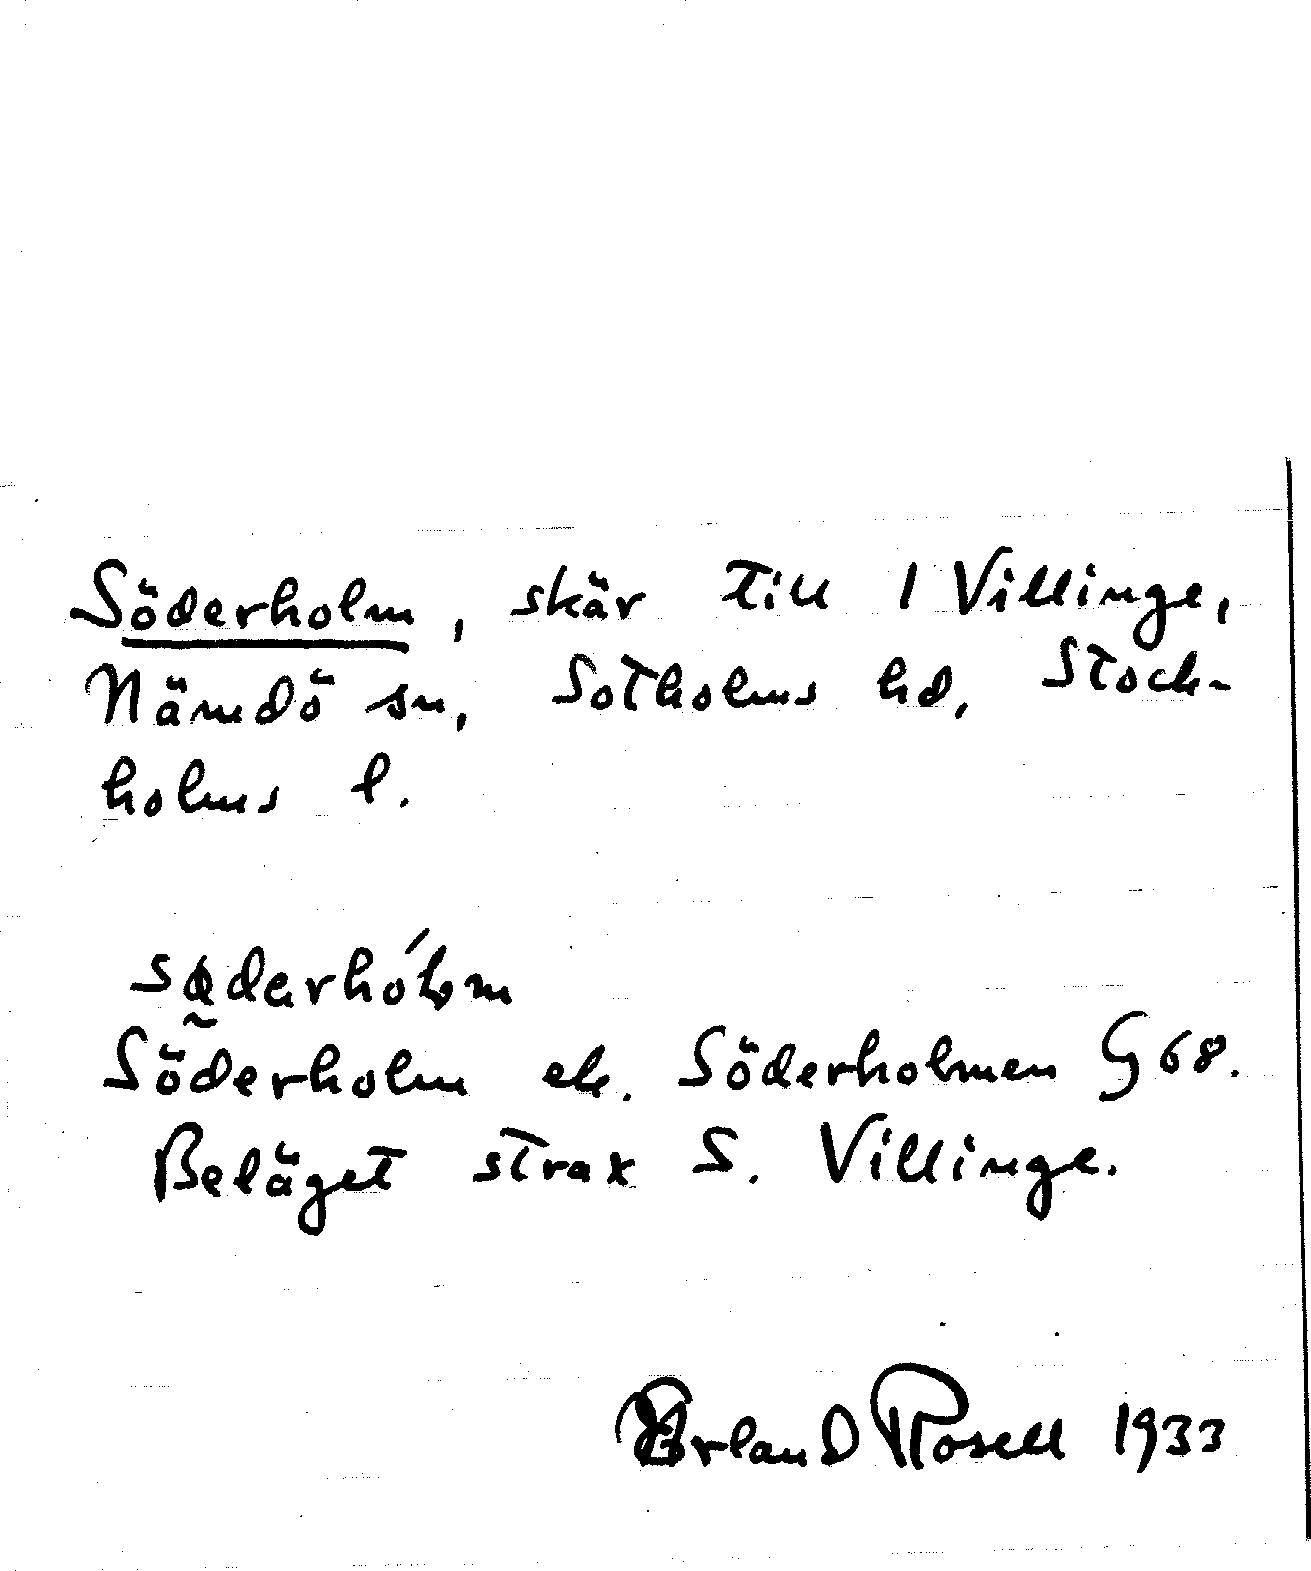 Söderholm, skär till 1 Villinge,
Nämdö sn, Sotholms hd, Stock-
holms l.
Söderholm el. Söderholmen G 68.
Beläget strax S. Villinge.
Erland Rosell 1933